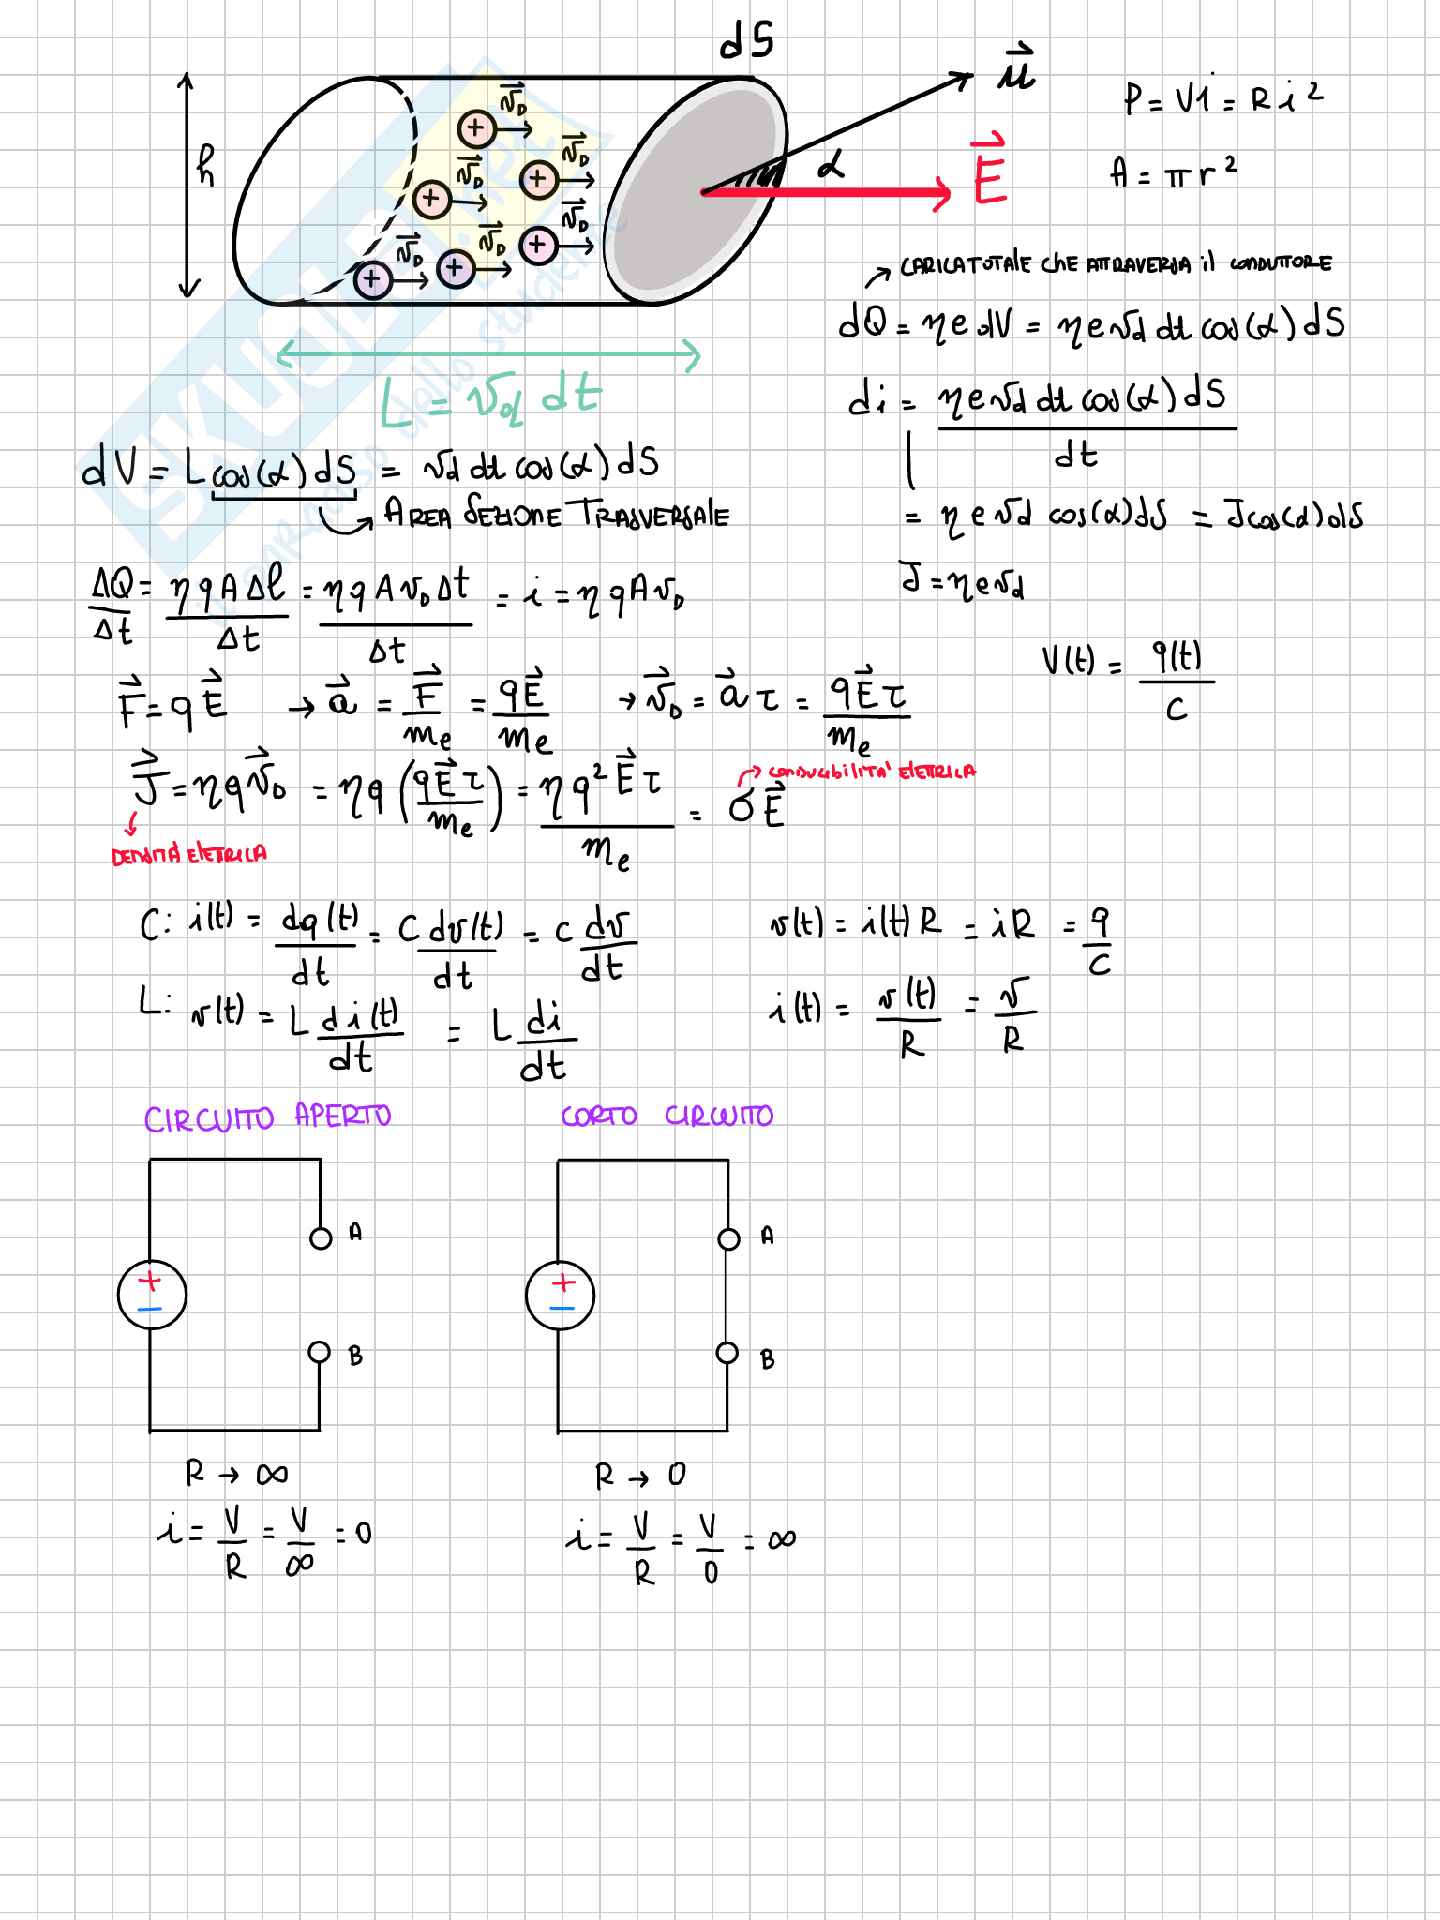 dS
h
v⃗_D
v⃗_D
v⃗_D
v⃗_D
v⃗_D
v⃗_D
v⃗_D
+
+
+
+
+
+
α
u⃗
E⃗
P = Vi = R i²
A = π r²
L = v_d dt
CARICA TOTALE CHE ATTRAVERSA IL CONDUTTORE
dQ = η e dV = η e v_d dt cos(α) dS
di = η e v_d dt cos(α) dS / dt
= η e v_d cos(α) dS = J cos(α) dS
J = η e v_d
dV = L cos(α) dS = v_d dt cos(α) dS
AREA SEZIONE TRASVERSALE
ΔQ/Δt = η q A Δl / Δt = η q A v_D Δt / Δt = i = η q A v_D
V(t) = q(t) / C
F⃗ = q E⃗ → a⃗ = F⃗ / m_e = q E⃗ / m_e → v⃗_D = a⃗ τ = q E⃗ τ / m_e
J⃗ = η q v⃗_D = η q (q E⃗ τ / m_e) = η q² E⃗ τ / m_e = σ E⃗
CONDUCIBILITA' ELETRICA
DENSITÀ ELETRICA
C: i(t) = dq(t)/dt = C dv(t)/dt = C dv/dt
L: v(t) = L di(t)/dt = L di/dt
v(t) = i(t) R = iR = q/C
i(t) = v(t)/R = v/R
CIRCUITO APERTO
+
−
A
B
R → ∞
i = V/R = V/∞ = 0
CORTO CIRCUITO
+
−
A
B
R → 0
i = V/R = V/0 = ∞